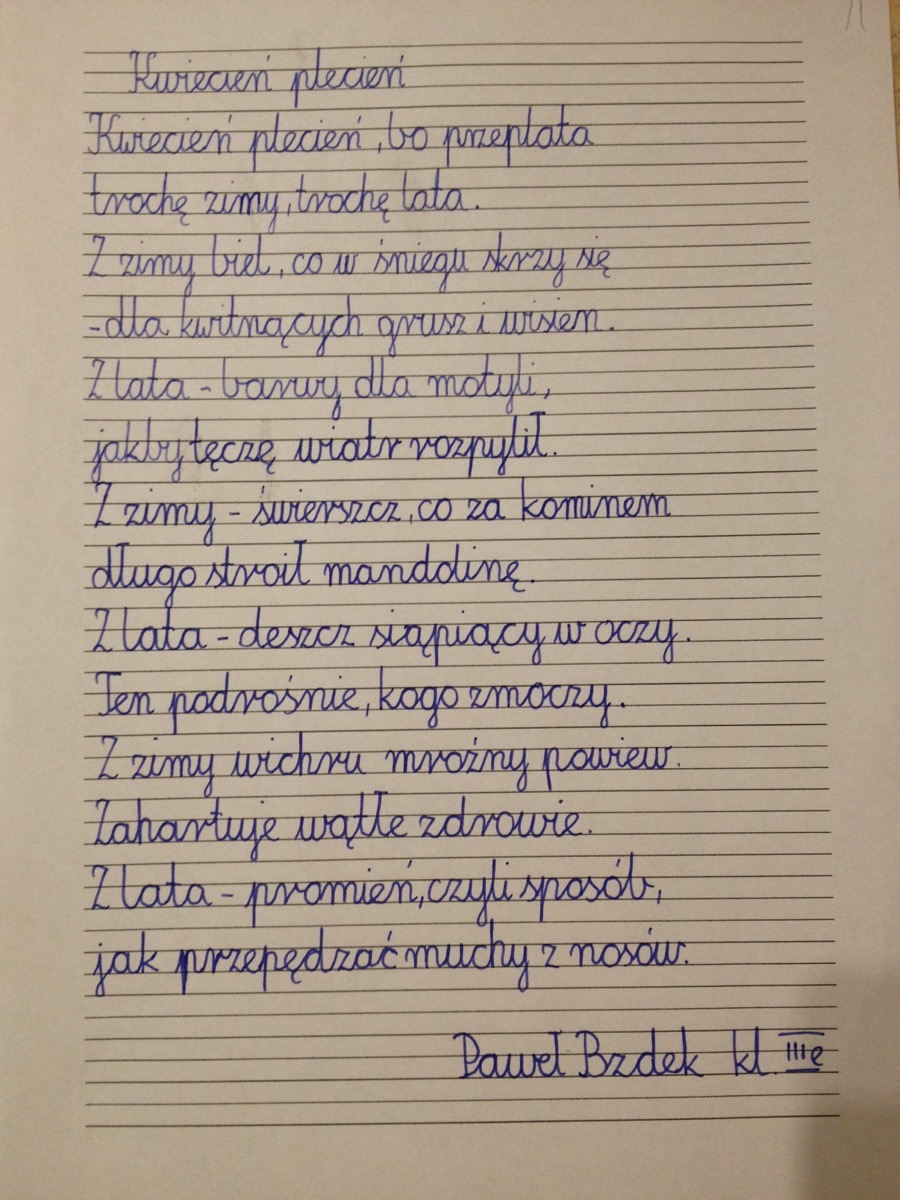 Kwiecień plecień
Kwiecień plecień, bo przeplata
trochę zimy, trochę lata.
Z zimy biel, co w śniegu skrzy się
- dla kwitnących grusz i wisien.
Z lata - barwy dla motyli,
jakby tęczę wiatr rozpylił.
Z zimy - świerszcz, co za kominem
długo stroił mandolinę.
Z lata - deszcz siąpiący w oczy.
Ten podrośnie, kogo zmoczy.
Z zimy wichru mroźny powiew.
Zahartuje wątłe zdrowie.
Z lata - promień, czyli sposób,
jak przepędzać muchy z nosów.
Paweł Bzdek kl. IIIe